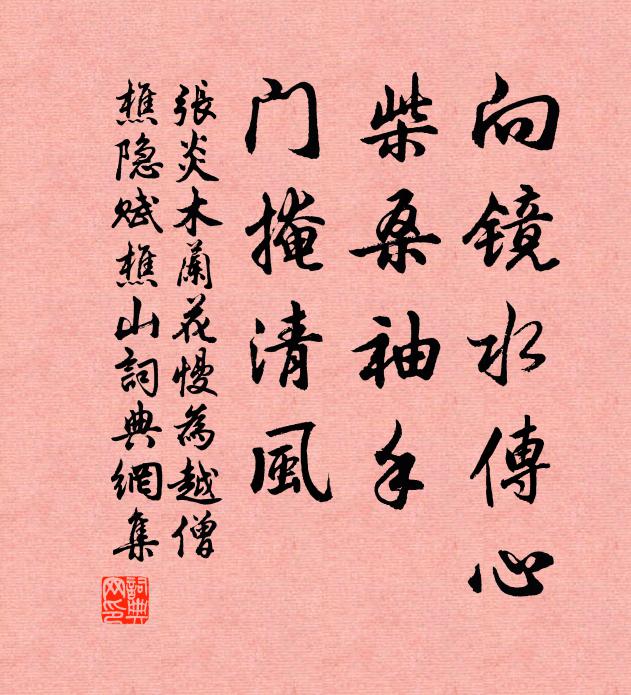 向镜水傳心
柴桑袖手
门掩清風
張炎木蘭花慢為越僧
樵隐赋樵山詞典網集
詞典網印